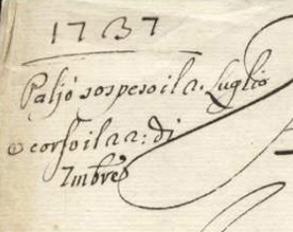 1737
Palio sospeso il 2. Luglio
e corso il 22: di
7mbre